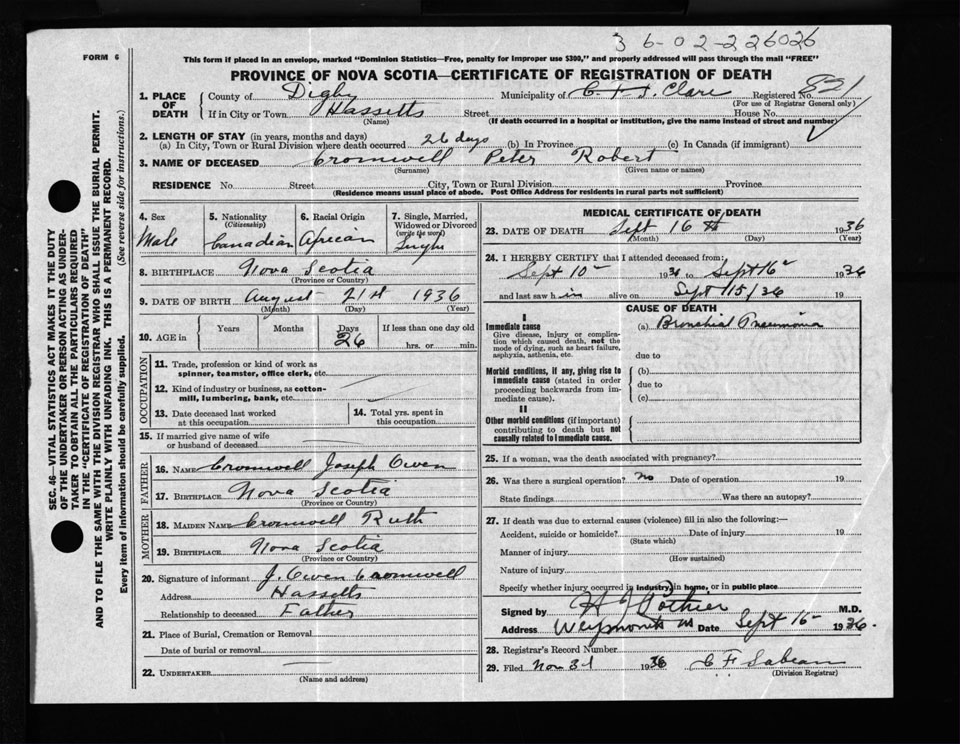 36-02-226026
FORM 6
This form if placed in an envelope, marked "Dominion Statistics—Free, penalty for improper use $300," and properly addressed will pass through the mail "FREE"
PROVINCE OF NOVA SCOTIA—CERTIFICATE OF REGISTRATION OF DEATH
821
1. PLACE OF DEATH
County of Digby Municipality of Clare Registered No.
(For use of Registrar General only)
If in City or Town Hassetts Street House No.
(Name) (If death occurred in a hospital or institution, give the name instead of street and number)
2. LENGTH OF STAY (in years, months and days)
(a) In City, Town or Rural Division where death occurred 26 days (b) In Province (c) In Canada (if immigrant)
3. NAME OF DECEASED Cromwell Peter Robert
(Surname) (Given name or names)
RESIDENCE No. Street City, Town or Rural Division Province
(Residence means usual place of abode. Post Office Address for residents in rural parts not sufficient)
4. Sex
Male
5. Nationality (Citizenship)
Canadian
6. Racial Origin
African
7. Single, Married, Widowed or Divorced (write the word)
Single
8. BIRTHPLACE Nova Scotia
(Province or Country)
9. DATE OF BIRTH August 21st 1936
(Month) (Day) (Year)
10. AGE in Years Months Days If less than one day old
26 hrs. or min.
OCCUPATION
11. Trade, profession or kind of work as
spinner, teamster, office clerk, etc.
12. Kind of industry or business, as cotton-
mill, lumbering, bank, etc.
13. Date deceased last worked
at this occupation
14. Total yrs. spent in
this occupation
15. If married give name of wife
or husband of deceased
FATHER
16. NAME Cromwell Joseph Owen
17. BIRTHPLACE Nova Scotia
(Province or Country)
MOTHER
18. MAIDEN NAME Cromwell Ruth
19. BIRTHPLACE Nova Scotia
(Province or Country)
20. Signature of informant J. Owen Cromwell
Address Hassetts
Relationship to deceased Father
21. Place of Burial, Cremation or Removal
Date of burial or removal
22. UNDERTAKER
(Name and address)
MEDICAL CERTIFICATE OF DEATH
23. DATE OF DEATH Sept 16th 1936
(Month) (Day) (Year)
24. I HEREBY CERTIFY that I attended deceased from:
Sept 10 1936 to Sept 16 1936
and last saw him alive on Sept 15/36 19
CAUSE OF DEATH
I
Immediate cause
Give disease, injury or complication which caused death, not the mode of dying, such as heart failure, asphyxia, asthenia, etc.
(a) Bronchial Pneumonia
due to
Morbid conditions, if any, giving rise to immediate cause (stated in order proceeding backwards from immediate cause).
(b)
due to
(c)
II
Other morbid conditions (if important) contributing to death but not causally related to immediate cause.
25. If a woman, was the death associated with pregnancy?
26. Was there a surgical operation? No Date of operation 19
State findings Was there an autopsy?
27. If death was due to external causes (violence) fill in also the following:—
Accident, suicide or homicide? Date of injury 19
(State which)
Manner of injury
(How sustained)
Nature of injury
Specify whether injury occurred in industry, in home, or in public place
Signed by H J Pothier M.D.
Address Weymouth NS Date Sept 16 1936.
28. Registrar's Record Number
29. Filed Nov 3d 1936 C F Sabean
(Division Registrar)
SEC. 46—VITAL STATISTICS ACT MAKES IT THE DUTY
OF THE UNDERTAKER OR PERSON ACTING AS UNDER-
TAKER TO OBTAIN ALL THE PARTICULARS REQUIRED
IN THE "CERTIFICATE OF REGISTRATION OF DEATH"
AND TO FILE THE SAME WITH THE DIVISION REGISTRAR WHO SHALL ISSUE THE BURIAL PERMIT.
WRITE PLAINLY WITH UNFADING INK. THIS IS A PERMANENT RECORD.
Every item of information should be carefully supplied. (See reverse side for instructions.)